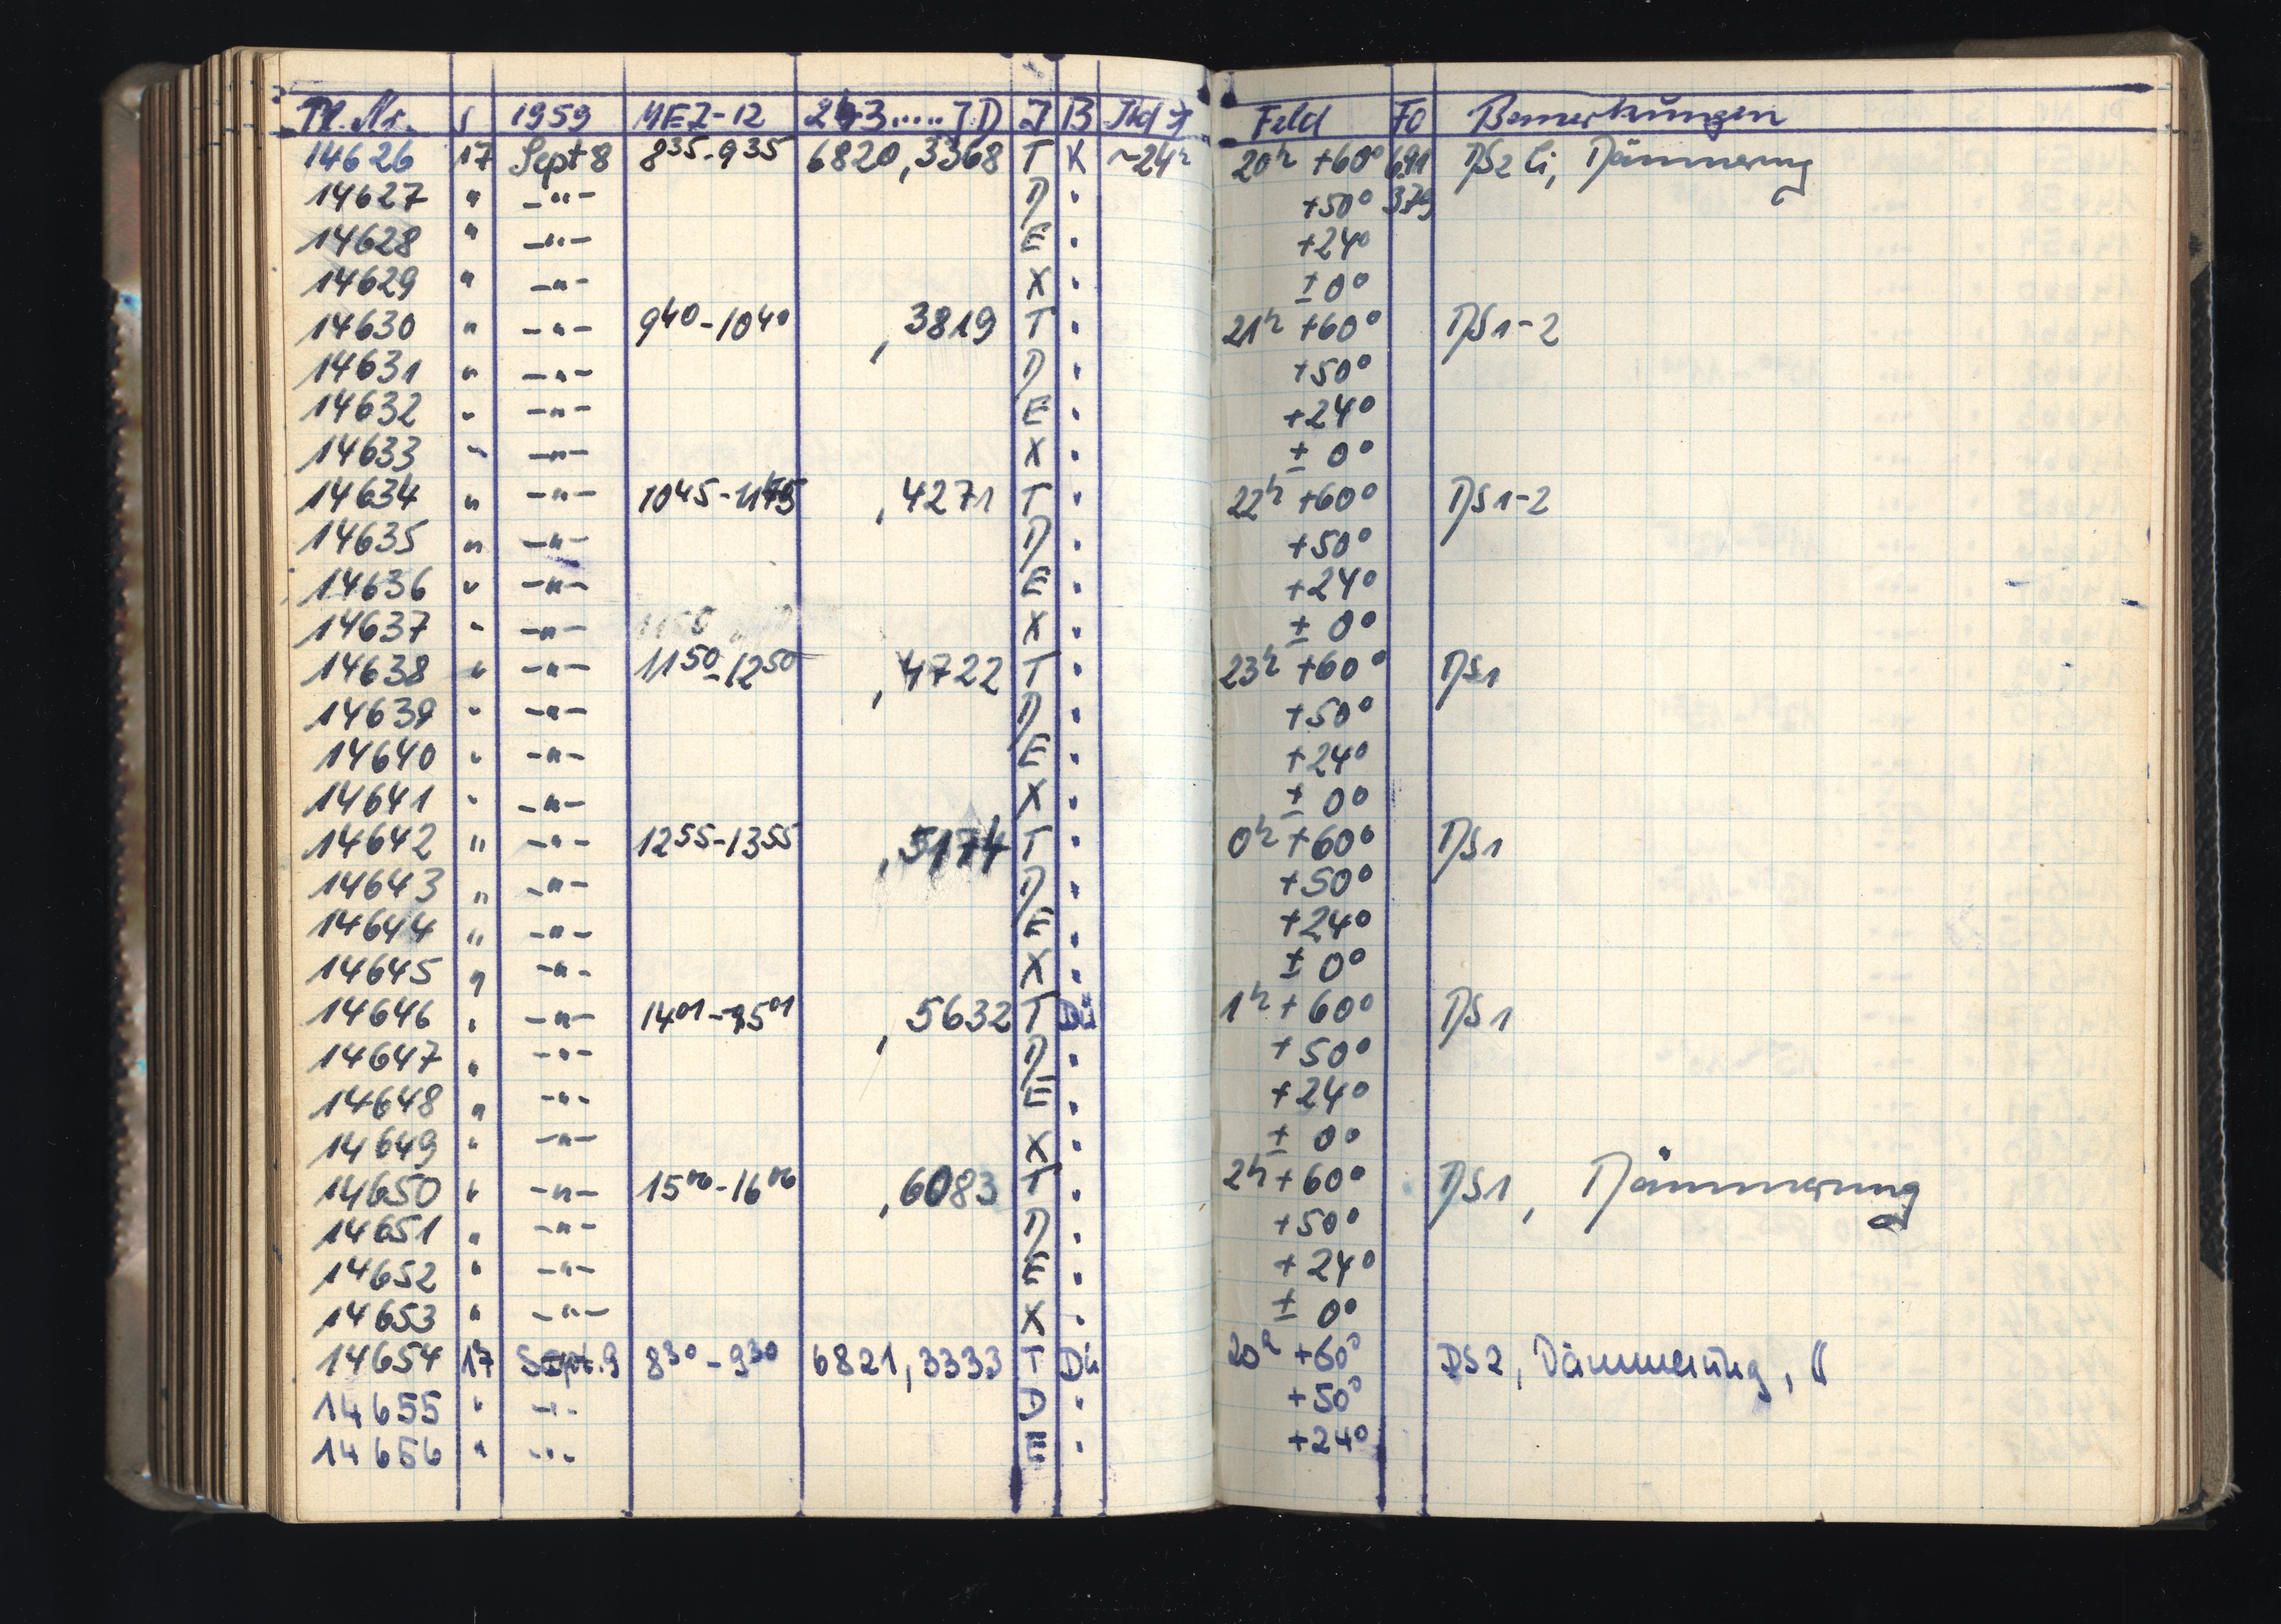 Pl. Nr. S 1959 MEZ-12 243.....JD J B Feld FO Bemerkungen
14626 17 Sept 8 8³⁵-9³⁵ 6820,3368 T K ~24ʰ 20ʰ +60° 691 DS2 Ci, Dämmerung
14627 " -"- D " +50° 379
14628 " -"- E " +24°
14629 " -"- X " ±0°
14630 " -"- 9⁴⁰-10⁴⁰ ,3819 T " 21ʰ +60° DS1-2
14631 " -"- D " +50°
14632 " -"- E " +24°
14633 " -"- X " ±0°
14634 " -"- 10⁴⁵-11⁴⁵ ,4271 T " 22ʰ +60° DS1-2
14635 " -"- D " +50°
14636 " -"- E " +24°
14637 " -"- X " ±0°
14638 " -"- 11⁵⁰-12⁵⁰ ,4722 T " 23ʰ +60° DS1
14639 " -"- D " +50°
14640 " -"- E " +24°
14641 " -"- X " ±0°
14642 " -"- 12⁵⁵-13⁵⁵ ,5174 T " 0ʰ +60° DS1
14643 " -"- D " +50°
14644 " -"- E " +24°
14645 " -"- X " ±0°
14646 " -"- 14⁰¹-15⁰¹ ,5632 T Dü 1ʰ +60° DS1
14647 " -"- D " +50°
14648 " -"- E " +24°
14649 " -"- X " ±0°
14650 " -"- 15⁰⁶-16⁰⁶ ,6083 T " 2ʰ +60° DS1, Dämmerung
14651 " -"- D " +50°
14652 " -"- E " +24°
14653 " -"- X " ±0°
14654 17 Sept. 9 8³⁰-9³⁰ 6821,3333 T Dü 20ʰ +60° DS2, Dämmerung,
14655 " -"- D " +50°
14656 " -"- E " +24°